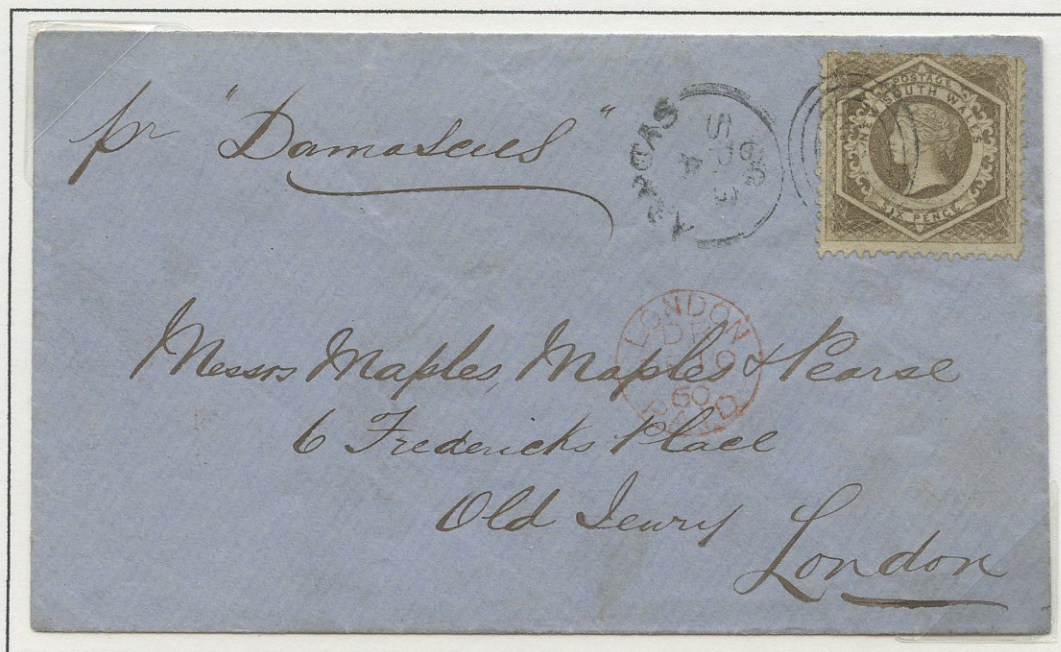 pr "Damascus"
POSTAGE
NEW SOUTH WALES
SIX PENCE
LONDON
60
PAID
Messrs Maples, Maples & Pearse
6 Fredericks Place
Old Jewry
London